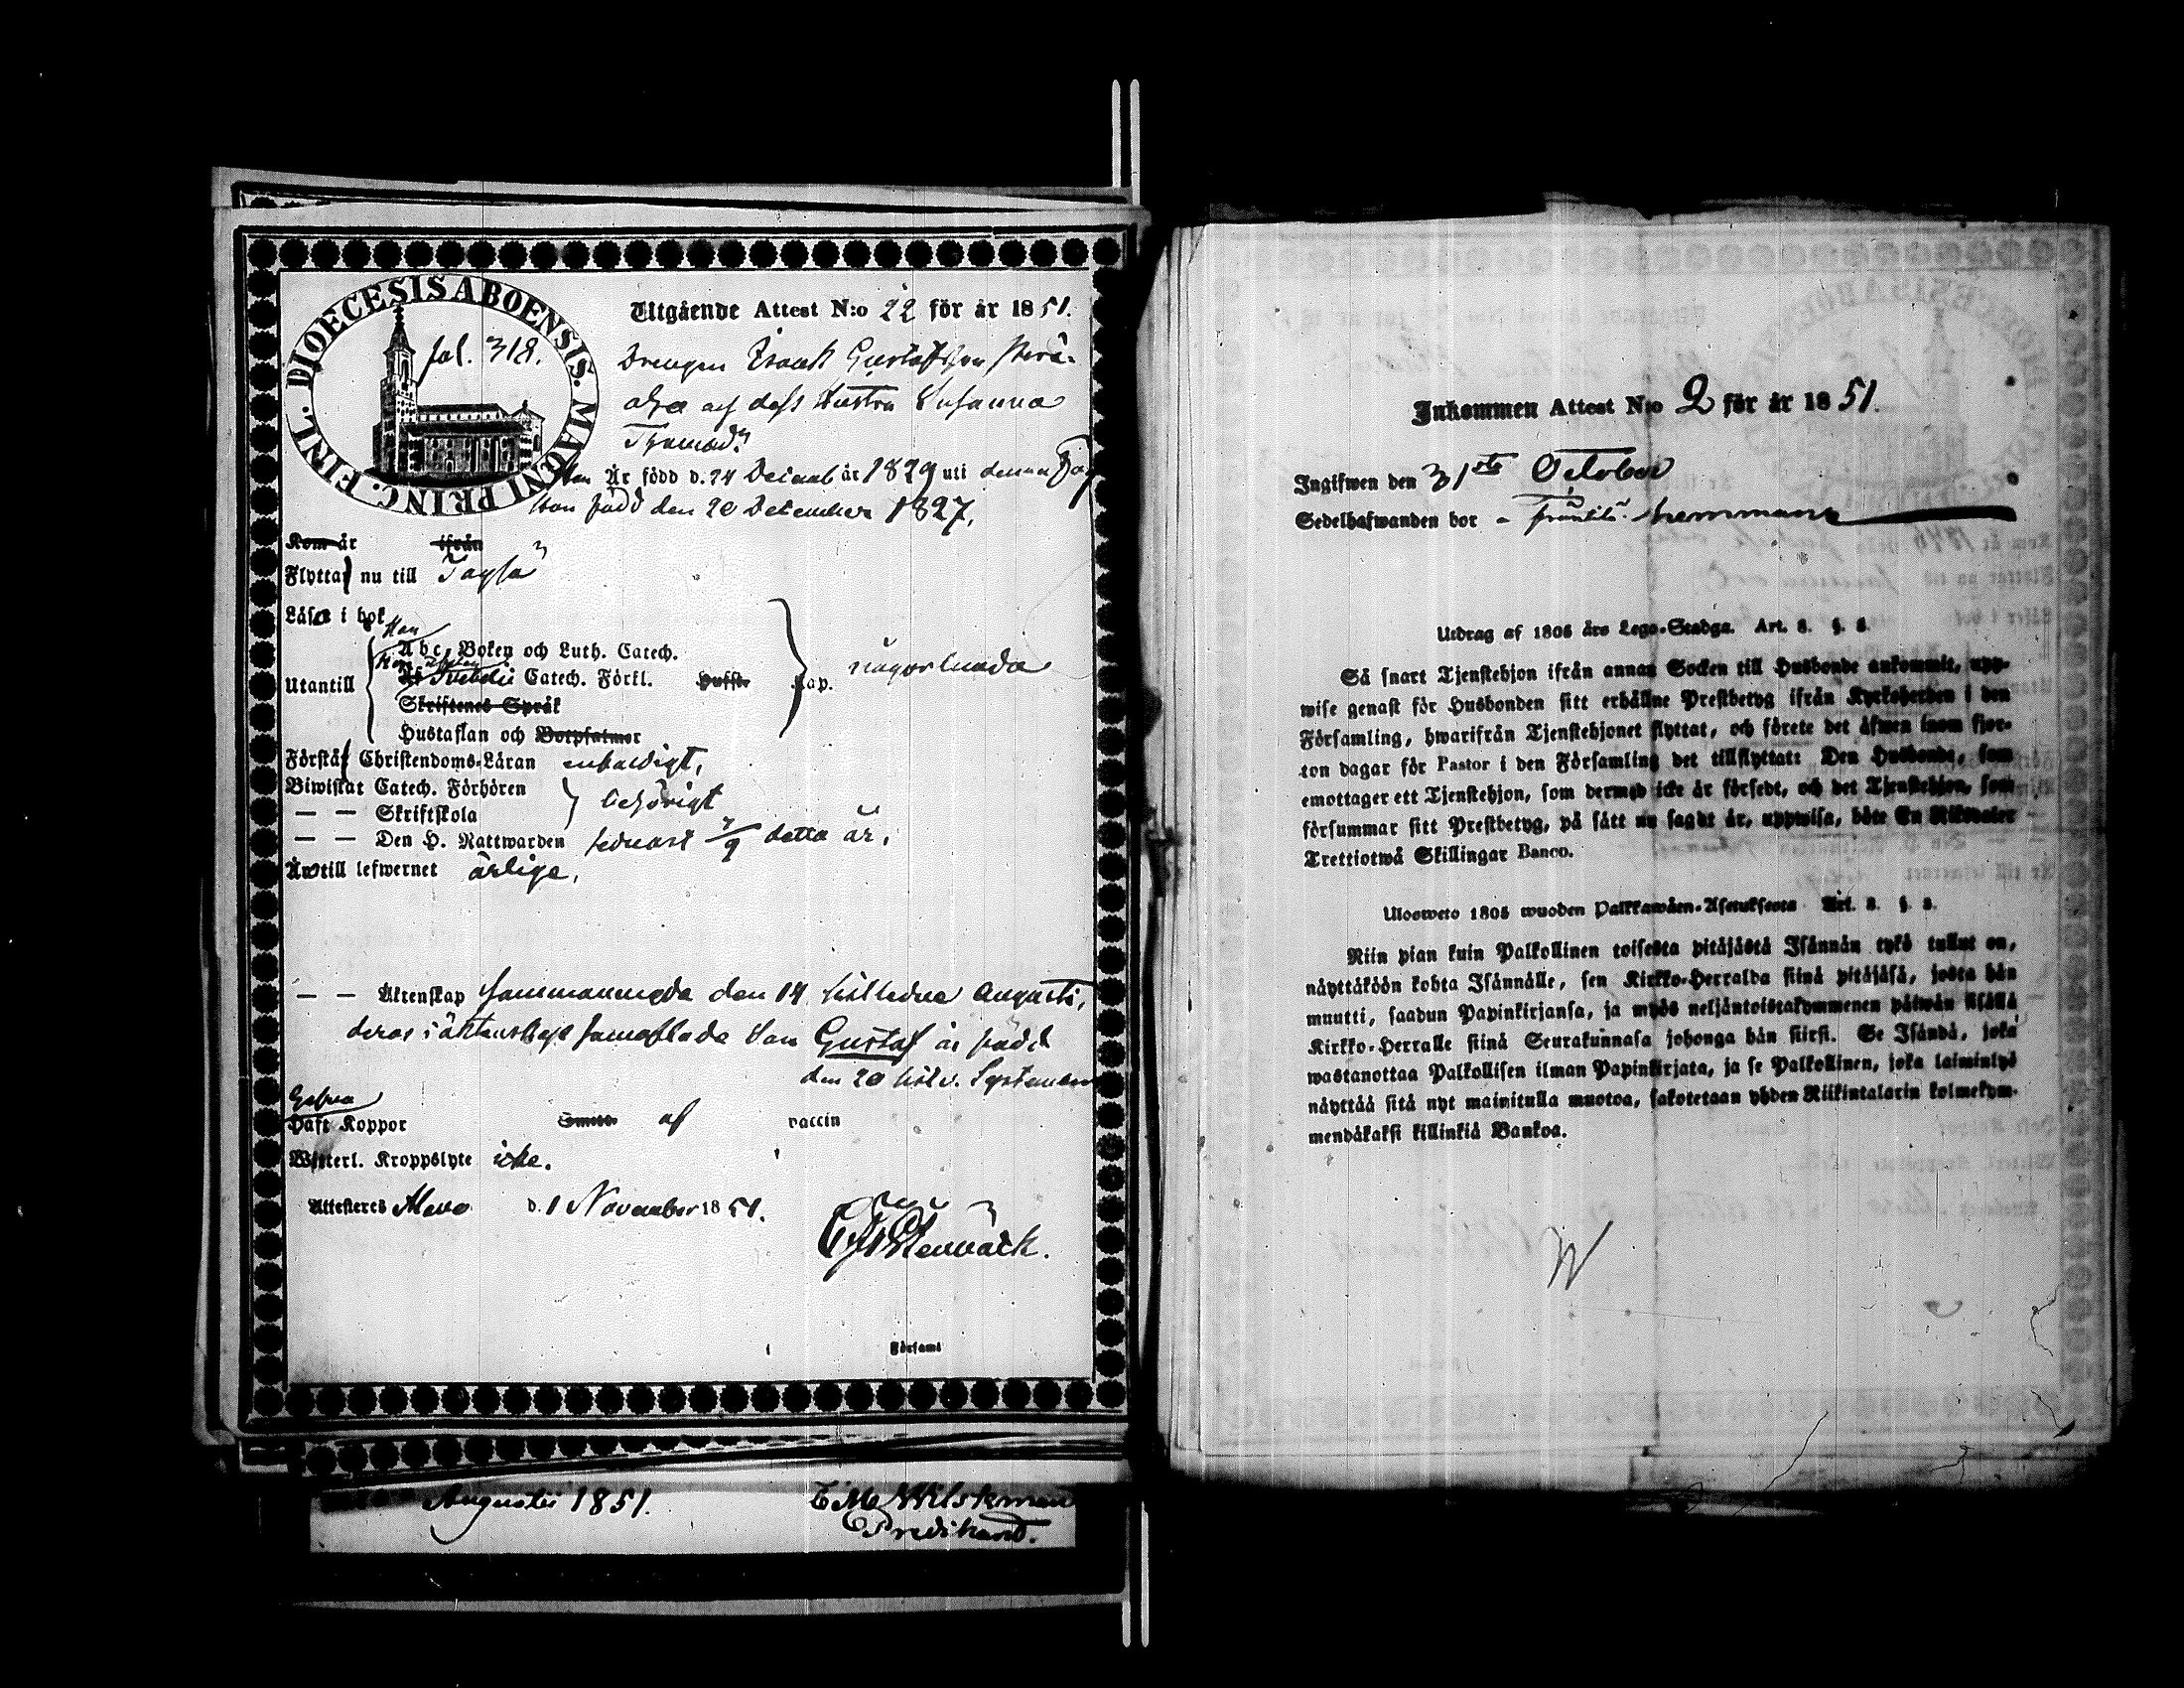 DIOECESIS ABOENSIS. MAGNI PRINC. FINL.
fol. 318.
Utgående Attest N:o 22 för år 1851.
Drengen Isaak Gustafsson
och dess Hustru Susanna
Thomasd:r
Han Är född d. 24 Decemb år 1829 uti denna
hon född den 20 December 1827.
Kom år ifrån
Flytta nu till
Läsa i bok
Han
Abc Boken och Luth. Catech.
Hon
Svebelii Catech. Förkl. Husst. Kap. någorlunda
Utantill
Skriftenes Språk
Hustaflan och Botpsalmer
Förstå Christendoms-Läran enfaldigt,
Biwistat Catech. Förhören
— — Skriftskola behörigt
— — Den H. Nattwarden senast 7/9 detta år.
Äro till lefwernet ärlige,
— — Äktenskap sammanvigda den 14 sistledne Augusti,
deras i äktenskap sammaflade Son Gustaf är född
den 20 sistl. September
Haft Koppor Smitt. af vaccin
Witterl. Kroppslyte icke.
Attesteres d. 1 November 1851.
Stenbäck.
Församl
Augusti 1851.
Wilskman
Predikant.
Inkommen Attest N:o 2 för år 1851.
Ingifwen den 31ste October
Sedelhafwanden bor hemman
Utdrag af 1805 års Lego-Stadga. Art. 8. §. 8.
Så snart Tjenstehjon ifrån annan Socken till Husbonde ankommit, upp-
wise genast för Husbonden sitt erhållne Prestbetyg ifrån Kyrkoherden i den
Församling, hwarifrån Tjenstehjonet flyttat, och förete det äfwen inom fjor-
ton dagar för Pastor i den Församling det tillflyttat: Den Husbonde, som
emottager ett Tjenstehjon, som dermed icke är försedt, och det Tjenstehjon, som
försummar sitt Prestbetyg, på sätt nu sagdt är, uppwisa, böte En Riksdaler
Trettiotwå Skillingar Banco.
Uloswето 1805 wuoden Palkkawäen-Asetuksesta Art. 8. §. 8.
Niin pian kuin Palkollinen toisesta pitäjästä Isännän tykö tullut on,
näyttäköön kohta Isännälle, sen Kirkko-Herralda siinä pitäjäsä, josta hän
muutti, saadun Papinkirjansa, ja myös neljäntoistakymmenen päiwän sisällä
Kirkko-Herralle siinä Seurakunnasa johonga hän siirsi. Se Isändä, joka
wastanottaa Palkollisen ilman Papinkirjata, ja se Palkollinen, joka laiminlyö
näyttää sitä nyt mainitulla muotoa, sakotetaan yhden Riikintalarin kolmekym-
mendäkaksi killinkiä Bankoa.